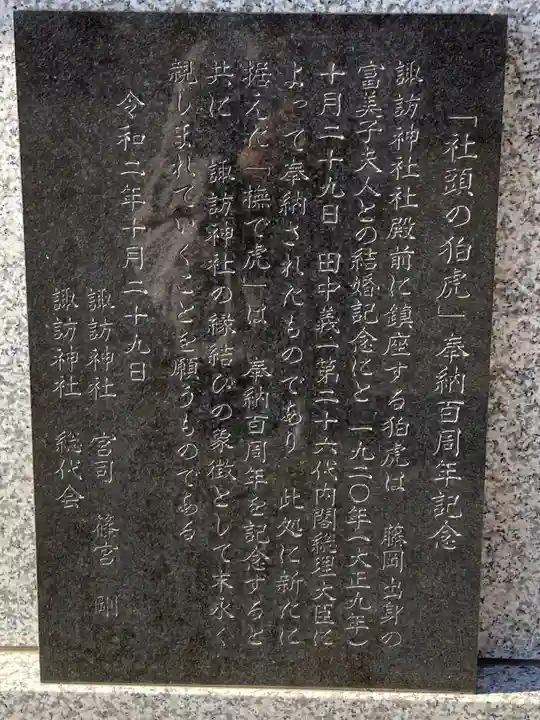 「社頭の狛虎」奉納百周年記念
諏訪神社社殿前に鎮座する狛虎は　藤岡出身の
富美子夫人との結婚記念にと　一九二〇年（大正九年）
十月二十九日　田中義一第二十六代内閣総理大臣に
よって奉納されたものであり　此処に新たに
据えた「撫で虎」は　奉納百周年を記念すると
共に　諏訪神社の縁結びの象徴として末永く
親しまれていくことを願うものである
令和二年十月二十九日
諏訪神社　宮司　篠宮　剛
諏訪神社　総代会